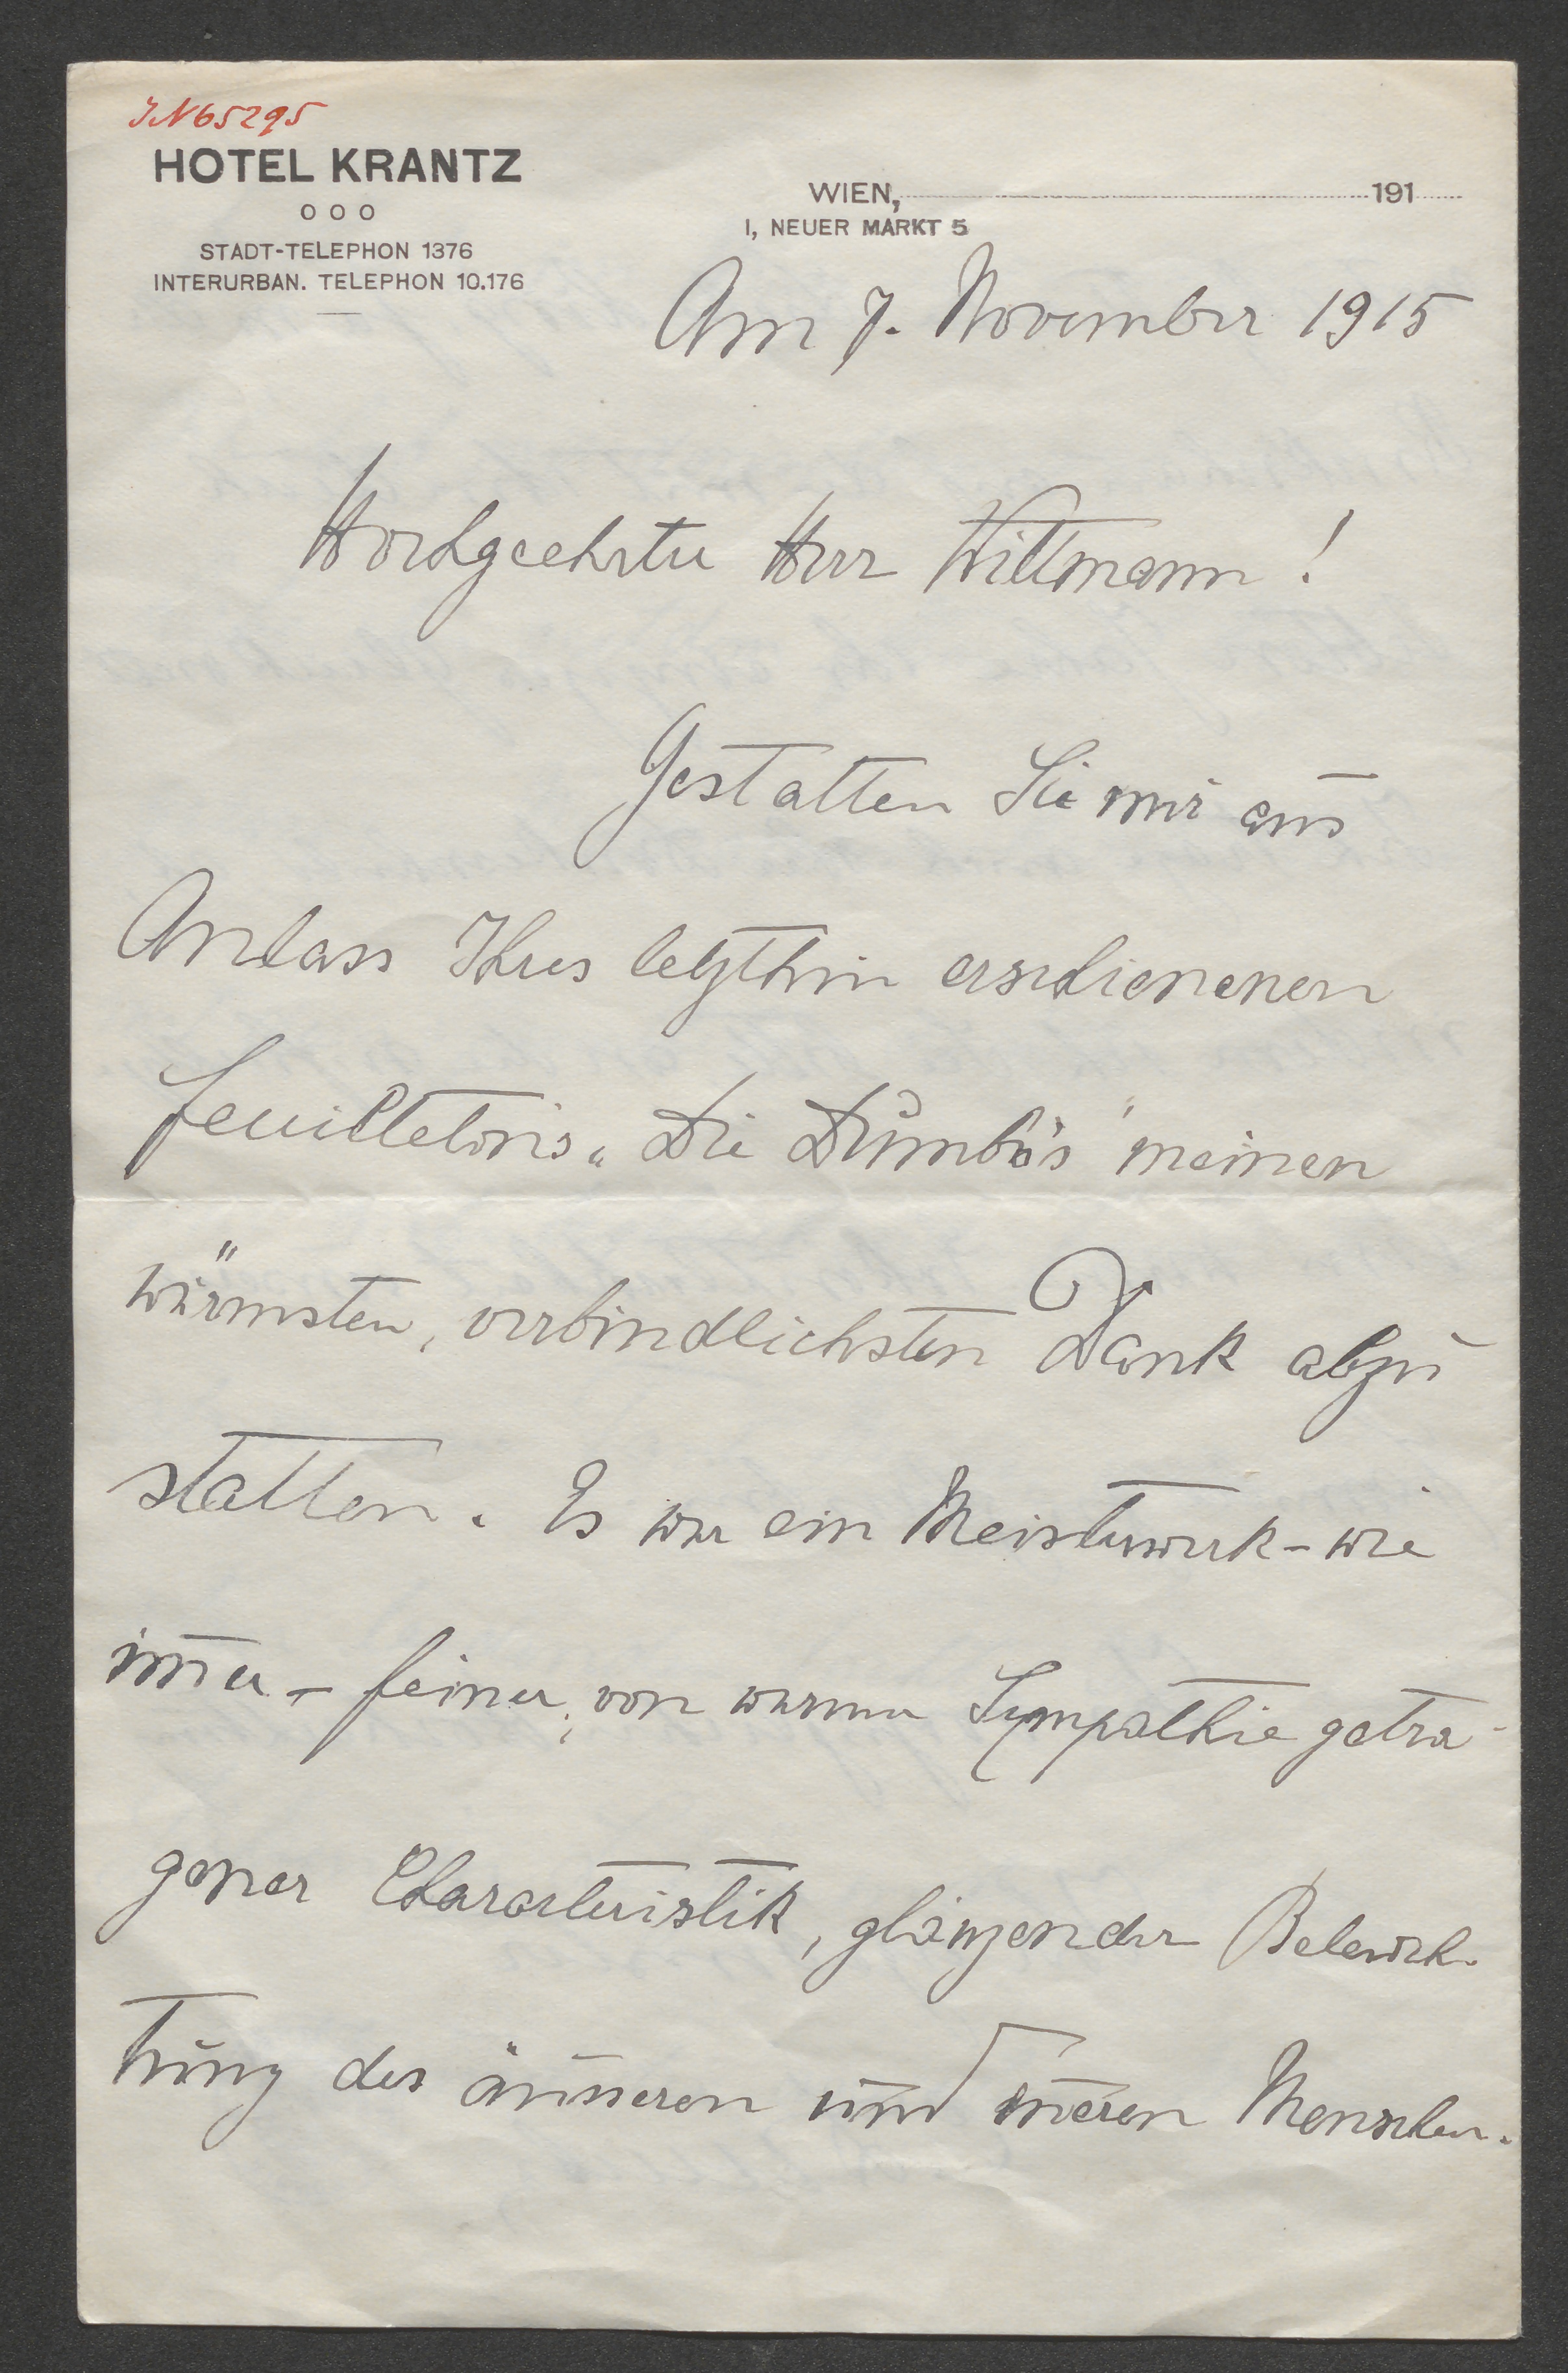 IN 65295
HOTEL KRANTZ
o o o
STADT-TELEPHON 1376
INTERURBAN. TELEPHON 10.176
WIEN, 191
I, NEUER MARKT 5
Am 7. November 1915
Hochgeehrter Herr Wittmann!
Gestatten Sie mir aus
Anlass Ihres letzthin erschienenen
Feuilletons „Die Dumba's" meinen
wärmsten, verbindlichsten Dank abzu
statten. Es war ein Meisterwerk - wie
im̅er - feiner, von warmer Sympathie getra-
gener Characteristik, glänzender Beleuch-
tung des äusseren und in̅eren Menschen.